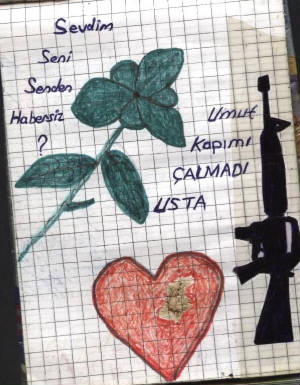 Sevdim
Seni
Senden
Habersiz
?
Umut
Kapımı
ÇALMADI
USTA